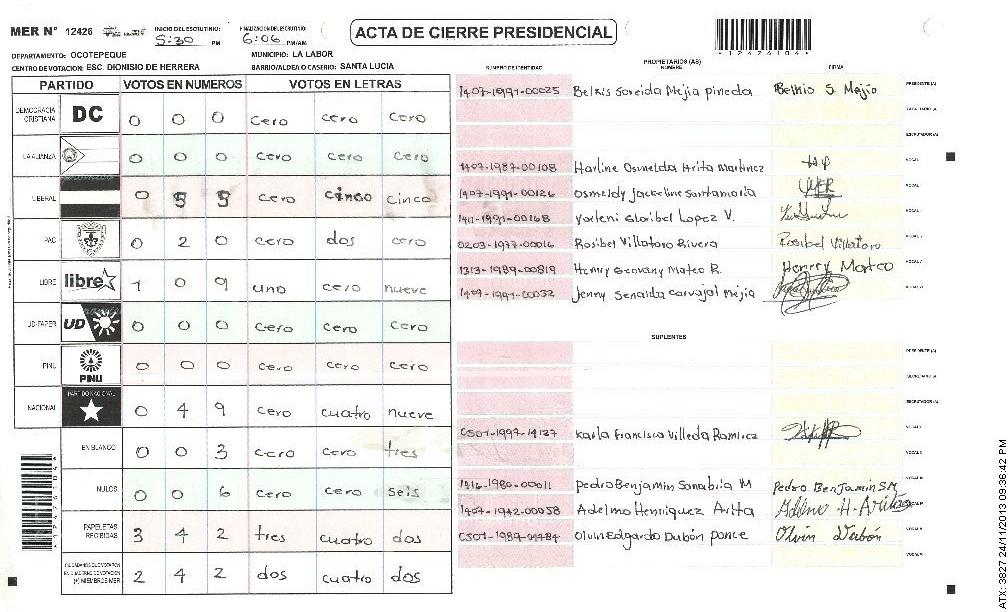 MER N° 12426 INICIO DEL ESCRUTINIO: 5:30 PM FINALIZACION DEL ESCRUTINIO: 6:06 PM/AM
ACTA DE CIERRE PRESIDENCIAL
*12426104*
DEPARTAMENTO: OCOTEPEQUE MUNICIPIO: LA LABOR
CENTRO DE VOTACION: ESC. DIONISIO DE HERRERA BARRIO/ALDEA O CASERIO: SANTA LUCIA
PARTIDO VOTOS EN NUMEROS VOTOS EN LETRAS
DEMOCRACIA CRISTIANA DC 0 0 0 cero cero cero
LA ALIANZA 0 0 0 cero cero cero
LIBERAL 0 5 5 cero cinco cinco
PAC 0 2 0 cero dos cero
LIBRE libre 1 0 9 uno cero nueve
UD-FAPER UD 0 0 0 cero cero cero
PINU PINU 0 0 0 cero cero cero
NACIONAL PARTIDO NACIONAL 0 4 9 cero cuatro nueve
EN BLANCO 0 0 3 cero cero tres
NULOS 0 0 6 cero cero seis
PAPELETAS RECIBIDAS 3 4 2 tres cuatro dos
CIUDADANOS QUE VOTARON EN CUADERNO DE VOTACION (+) MIEMBROS MER 2 4 2 dos cuatro dos
PROPIETARIOS (AS)
NUMERO DE IDENTIDAD NOMBRE FIRMA
1407-1991-00025 Belkis Soreida Mejia pineda Belkis S. Mejia PRESIDENTE (A)
SECRETARIO (A)
ESCRUTADOR (A)
1407-1987-00108 Harline Osmelda Arita Martinez VOCAL I
1407-1991-00126 Osmeldy Jackeline Santamaria VOCAL
1411-1991-00168 Yorleni Claribel Lopez V. VOCAL
0203-1977-00016 Rosibel Villatoro Rivera Rosibel Villatoro VOCAL
1313-1989-00819 Henry Geovany Mateo R. Henrry Mateo VOCAL
1407-1991-00032 Jenny Senaida Carvajal Mejia VOCAL
SUPLENTES
PRESIDENTE (A)
SECRETARIO (A)
ESCRUTADOR (A)
0501-1997-14127 Karla Francisca Villeda Ramirez VOCAL I
VOCAL II
1416-1980-00011 pedro Benjamin Sanabria M Pedro Benjamin SM
1407-1942-00058 Adelmo Henriquez Arita Adelmo H. Arita
0501-1989-04784 Olvin Edgardo Dubón ponce Olvin Dubón
ATX: 3827 24/11/2013 09:36:42 PM